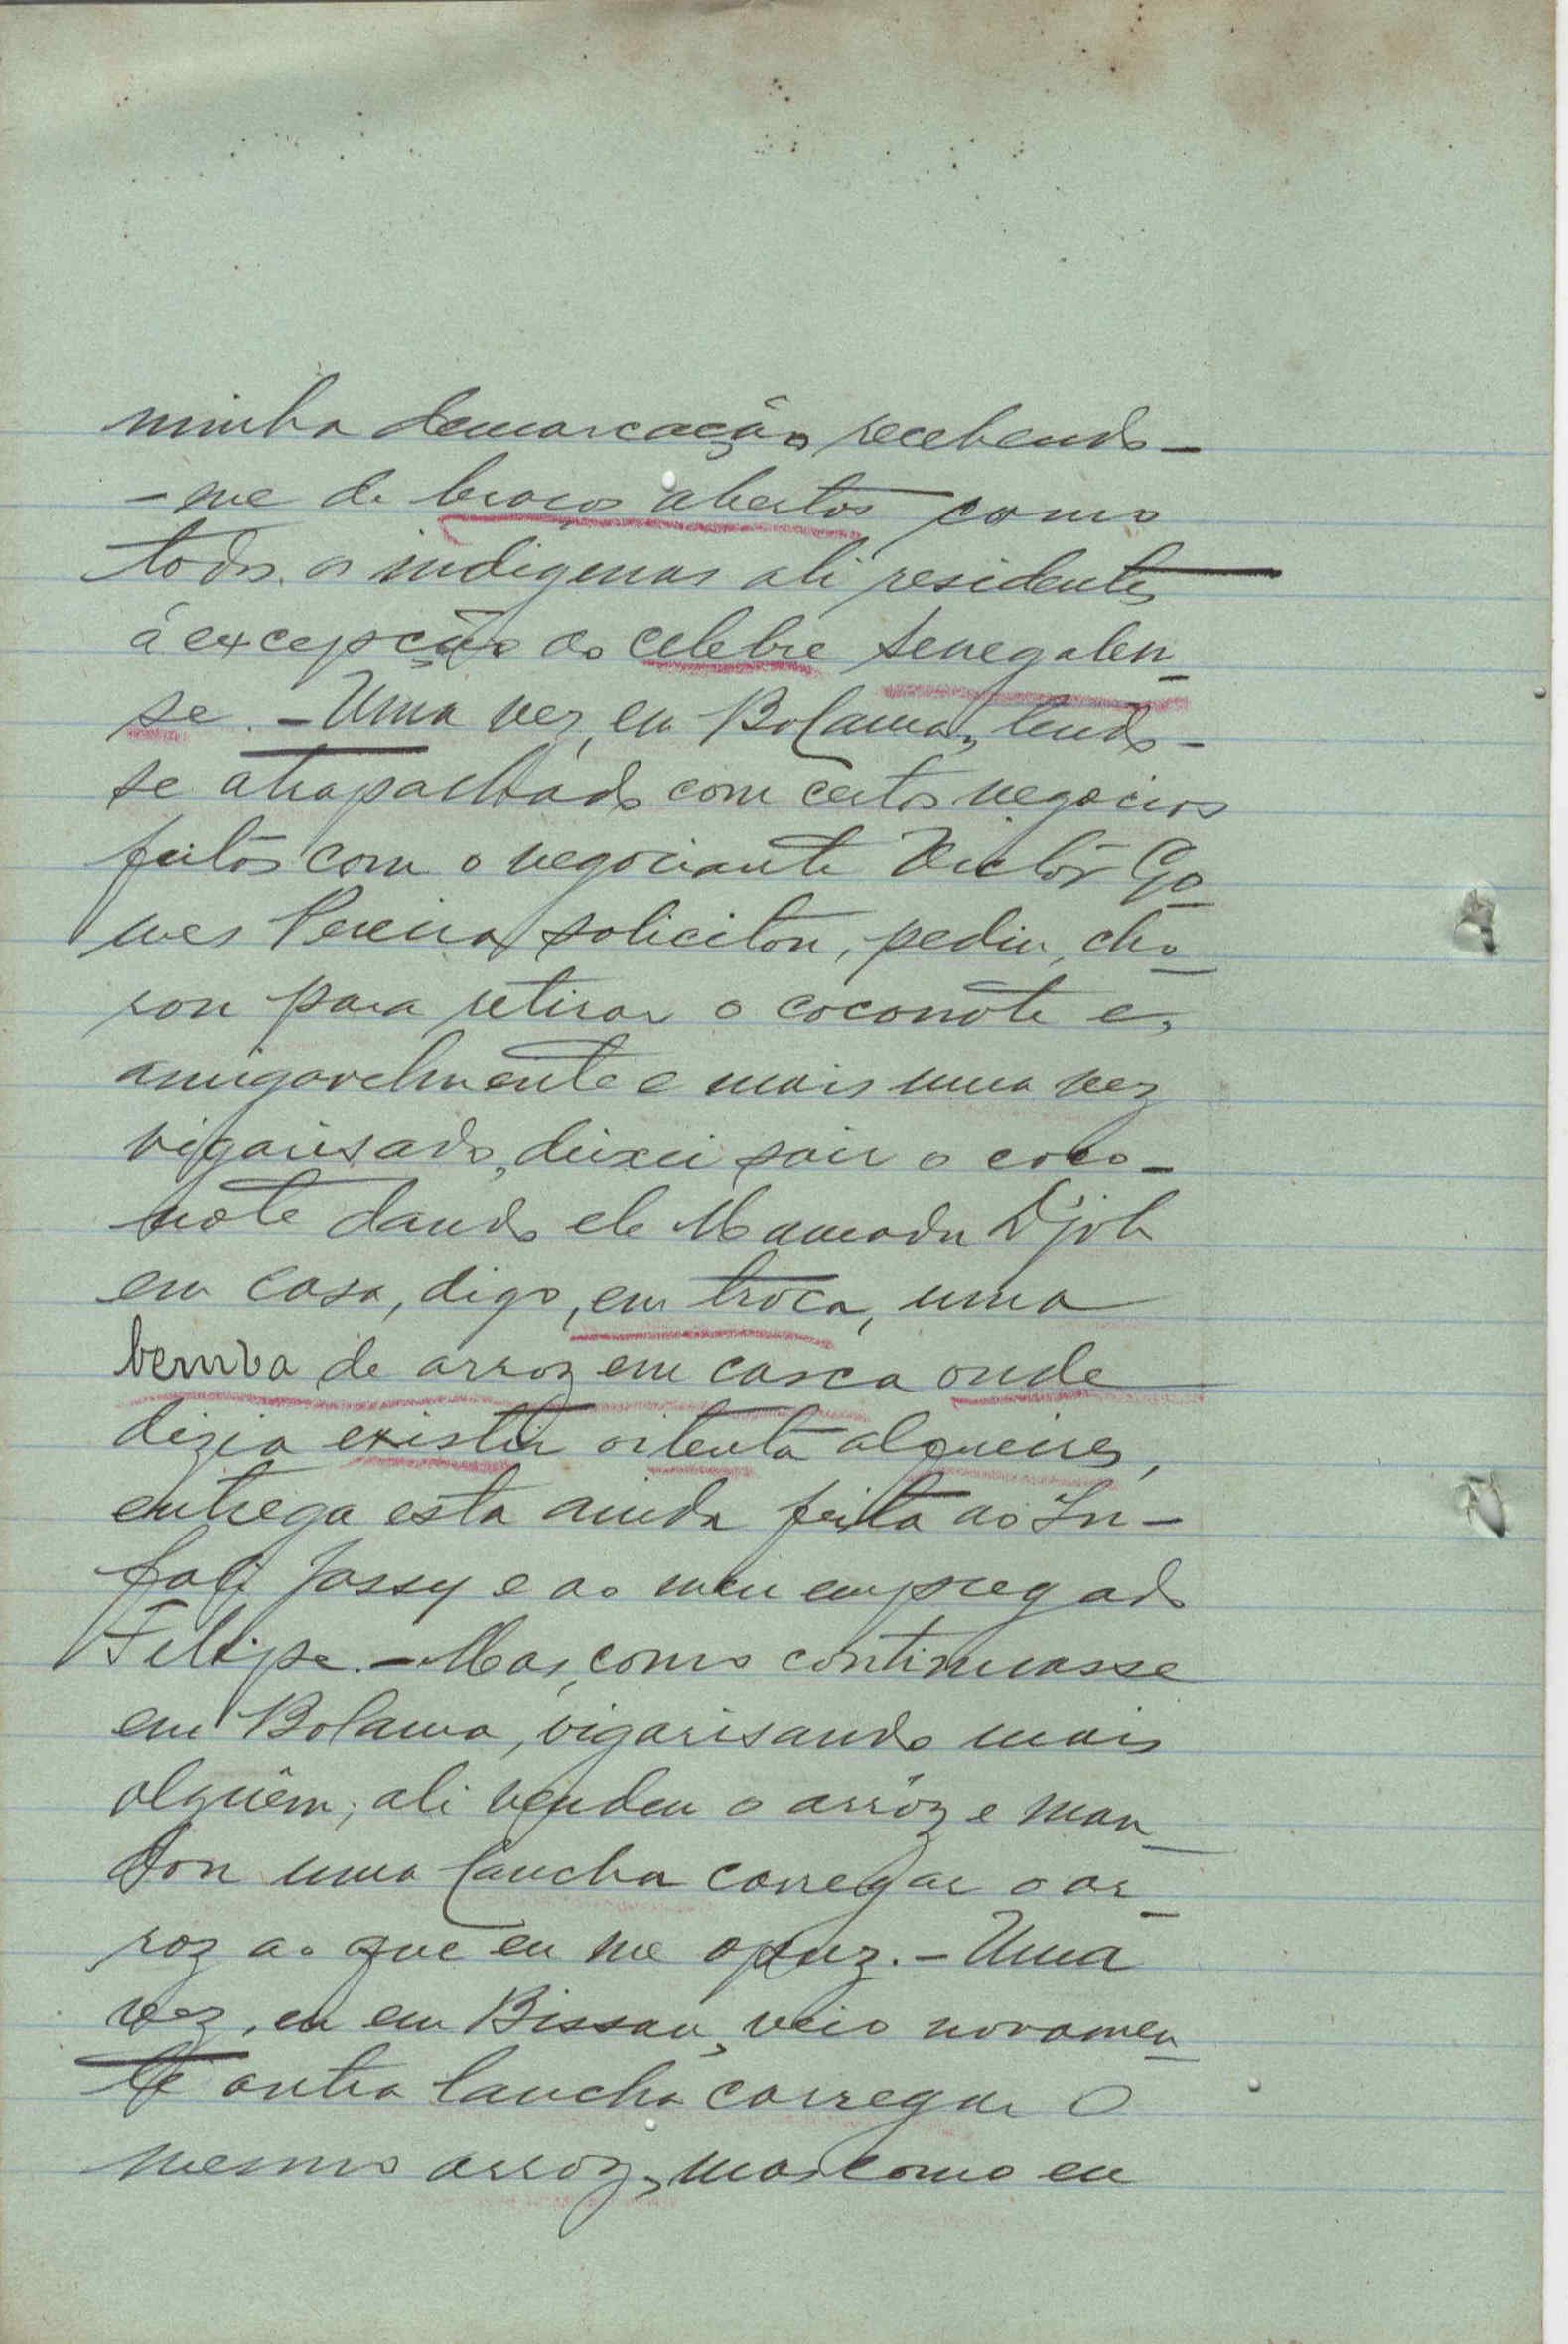 minha demarcação recebendo-
-me de braços abertos como
todos os indigenas ali residentes
á excepção do celebre senegalen-
se. - Uma vez, em Bolama, tendo-
se atrapalhado com certos negocios
feitos com o negociante Victôr Go-
mes Pereira, solicitou, pediu, cho-
rou para retirar o coconóte e,
amigavelmente e mais uma vez
vigarisado, deixei sair o coco-
note dando ele Mamadu Djob
em casa, digo, em troca, uma
bemba de arroz em casca onde
dizia existir oitenta alqueires,
entrega esta ainda feita ao In-
fali Jassy e ao meu empregado
Felipe. - Mas, como continuasse
em Bolama, vigarisando mais
alguêm, ali vendeu o arrôz e man-
dou uma lancha carregar o ar-
roz ao que eu me opuz. - Uma
vez, eu em Bissau, veio novamen-
te outra lancha carregar o
mesmo arroz, mas como eu